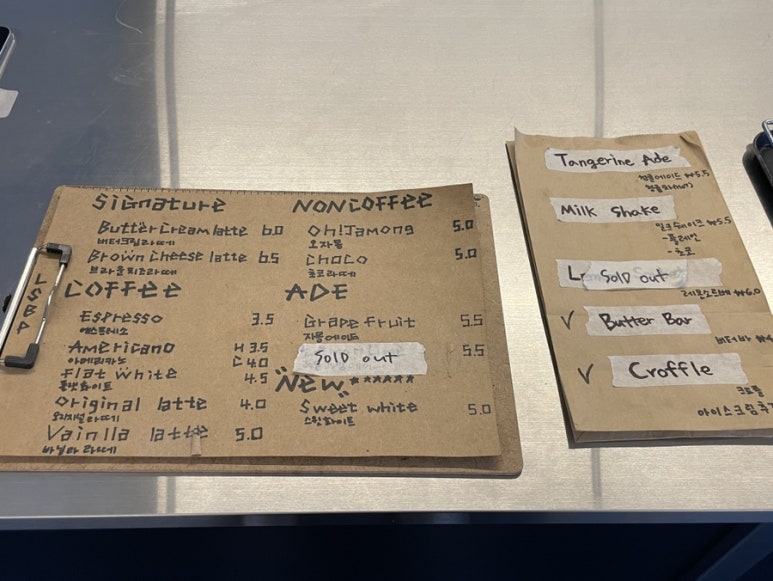 LSBP
Signature
Butter Cream latte 6.0
버터크림라떼
Brown Cheese latte 6.5
브라운치즈라떼
COFFEE
Espresso 3.5
에스프레소
Americano H 3.5
아메리카노 C 4.0
Flat White 4.5
플랫화이트
Original latte 4.0
오리지널라떼
Vainlla latte 5.0
바닐라 라떼
NONCOFFEE
Oh!Jamong 5.0
오자몽
Choco 5.0
초코라떼
ADE
Grape fruit 5.5
자몽에이드
Sold out 5.5
"New" ******
Sweet white 5.0
스윗화이트
Tangerine Ade
₩5.5
Milk Shake
밀크쉐이크 ₩5.5
-플레인
-초코
Sold out
레몬소르베 ₩6.0
✓ Butter Bar
버터바
✓ Croffle
크로플
아이스크림